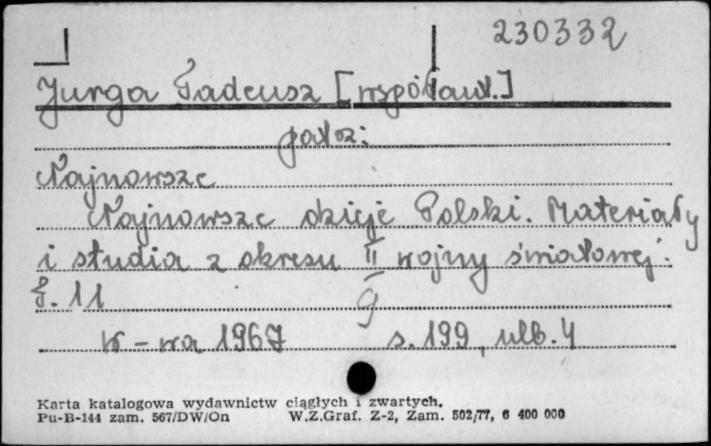 230332
Jurga Tadeusz [współaut.]
patrz:
Najnowsze
Najnowsze dzieje Polski. Materiały
i studia z okresu II wojny światowej.
T. 11
W-wa 1967 s. 199, nlb. 4
Karta katalogowa wydawnictw ciągłych i zwartych.
Pu-B-144 zam. 567/DW/On W.Z.Graf. Z-2, Zam. 502/77, 6 400 000